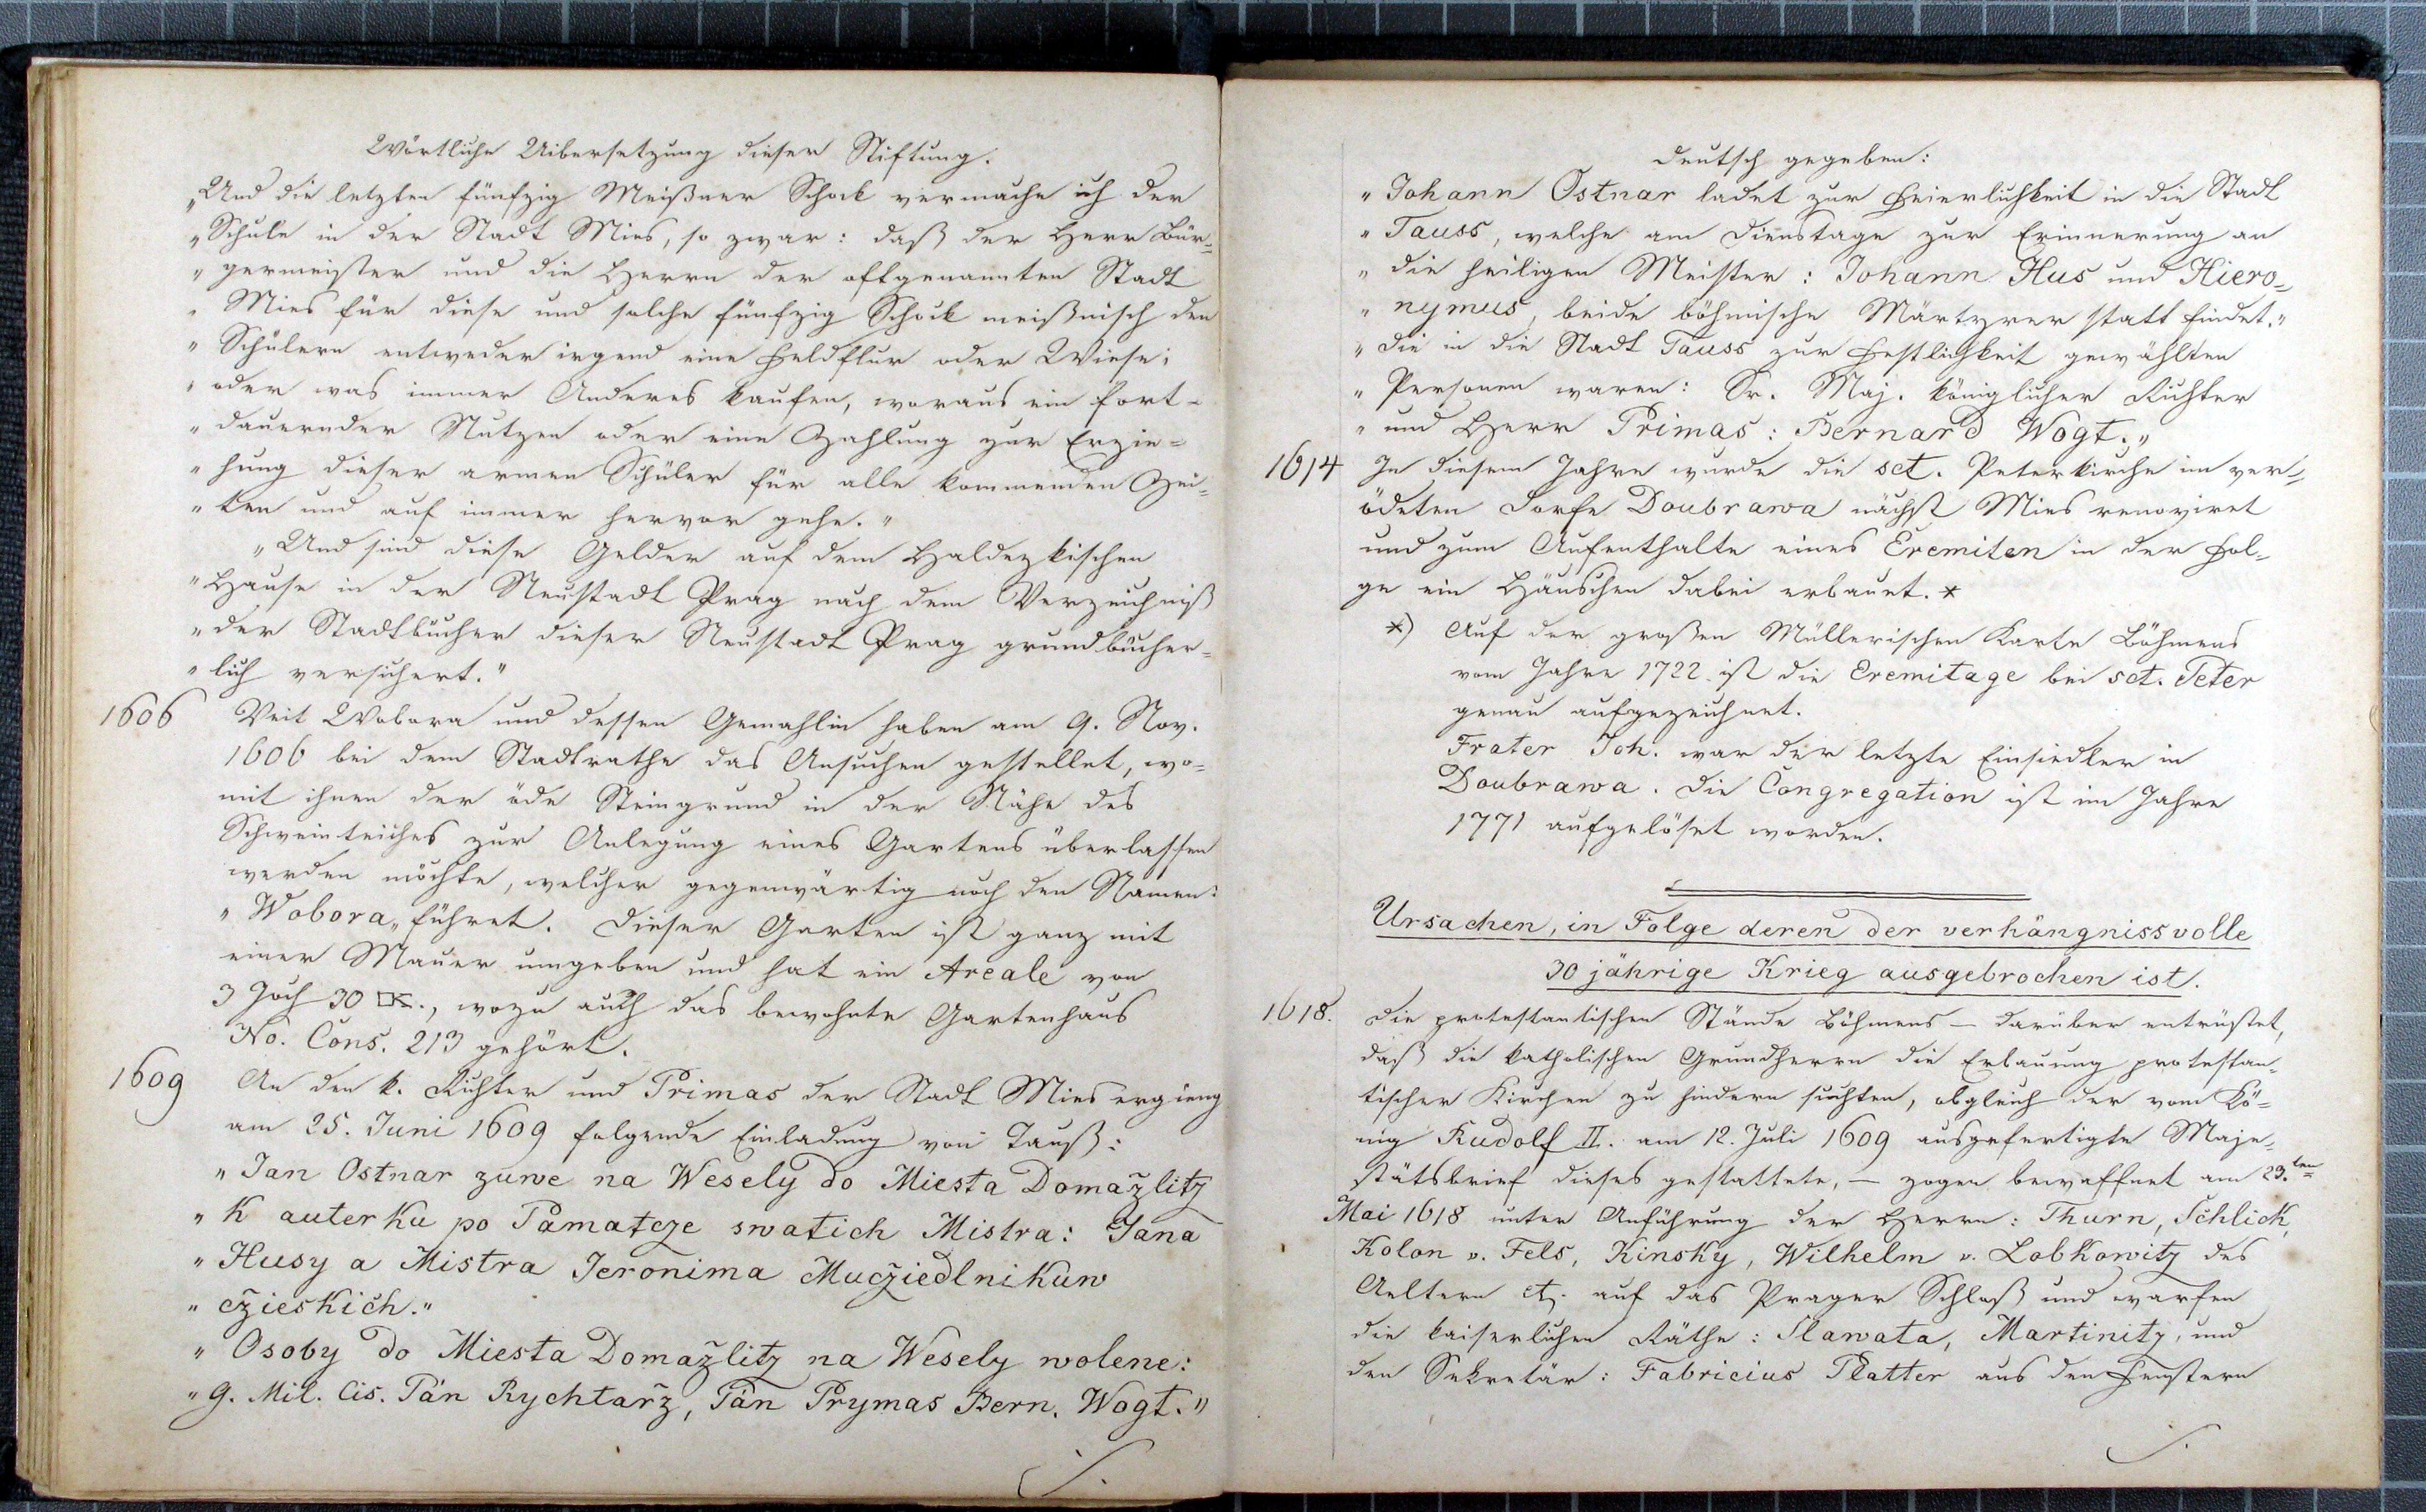 Wörtliche Uibersetzung dieser Stiftung.
„Und die letzten fünfzig Meißner Schock vermache ich der
„Schule in der Stadt Mies, so zwar: daß der Herr Bür=
„germeister und die Herrn der oftgenannten Stadt
„Mies für diese und solche fünfzig Schock meißnisch den
„Schülern entweder irgend eine Feldflur oder Wiese;
„oder was immer Anderes kaufen, woraus ein fort-
„dauernder Nutzen oder eine Zahlung zur Erzie=
„hung dieser armen Schüler für alle kommenden Zei=
„ten und auf immer hervor gehe."
„Und sind diese Gelder auf dem Haldezkischen
„Hause in der Neustadt Prag nach dem Verzeichniß
„der Stadtbücher dieser Neustadt Prag grundbücher=
„lich versichert."
1606 Veit Wobora und dessen Gemahlin haben am 9. Nov.
1606 bei dem Stadtrathe das Ansuchen gestellet, wo=
mit ihnen der öde Steingrund in der Nähe des
Schweinteiches zur Anlegung eines Gartens überlassen
werden möchte, welcher gegenwärtig noch den Namen:
„Wobora„ führet. Dieser Garten ist ganz mit
einer Mauer umgeben und hat ein Areale von
3 Joch 30 □K., wozu auch das bewohnte Gartenhaus
No. Cons. 213 gehört.
1609 An den k. Richter und Primas der Stadt Mies ergieng
am 25. Juni 1609 folgende Einladung von Tauß:
„Jan Ostnar zuwe na Wesely do Miesta Domažlitz
„k auterku po Pamatcze swatich Mistra: Jana
„Husy a Mistra Jeronima Mucžiedlnikuw
„cžieskich."
„Osoby do Miesta Domažlitz na Wesely wolene:
„G. Mil. Cis. Pán Rychtarž, Pán Prymas Bern. Wogt."
./.
Deutsch gegeben:
„Johann Ostnar ladet zur Feierlichkeit in die Stadt
„Tauss, welche am Dienstage zur Erinnerung an
„die heiligen Meister: Johann Hus und Hiero=
„nymus, beide böhmische Märtyrer statt findet."
„Die in die Stadt Tauss zur Festlichkeit gewählten
„Personen waren: Sr. Maj. königlicher Richter
„und Herr Primas: Bernard Wogt.„
1614 In diesem Jahre wurde die sct. Peterkirche im ver=
ödeten Dorfe Doubrawa nächst Mies renoviret
und zum Aufenthalte eines Eremiten in der Fol=
ge ein Häuschen dabei erbauet. *
*) Auf der großen Müllerischen Karte Böhmens
vom Jahre 1722 ist die Eremitage bei sct. Peter
genau aufgezeichnet.
Frater Joh. war der letzte Einsiedler in
Doubrawa. Die Congregation ist im Jahre
1771 aufgelöset worden.
Ursachen, in Folge deren der verhängnissvolle
30 jährige Krieg ausgebrochen ist.
1618. Die protestantischen Stände Böhmens — darüber entrüstet,
daß die katholischen Grundherrn die Erbauung protestan=
tischer Kirchen zu hindern suchten, obgleich der vom Kö=
nig Rudolf II. am 12. Juli 1609 ausgefertigte Maje=
stätsbrief dieses gestattete, — zogen bewaffnet am 23.ten
Mai 1618 unter Anführung der Herrn: Thurn, Schlick,
Kolon v. Fels, Kinsky, Wilhelm v. Lobkowitz des
Aeltern etz. auf das Prager Schloß und warfen
die kaiserlichen Räthe: Slawata, Martinitz, und
den Sekretär: Fabricius Platter aus den Fenstern
./.